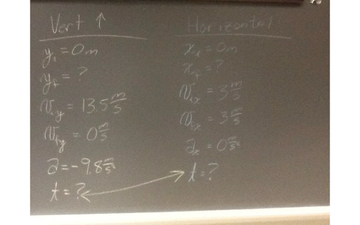 Vert ↑
y₁ = 0 m
y_f = ?
V_iy = 13.5 m/s
V_fy = 0 m/s
a = -9.8 m/s
t = ?
Horizontal
x_i = 0 m
x_f = ?
V_ix = 3 m/s
V_fx = 3 m/s
a_x = 0 m/s
t = ?